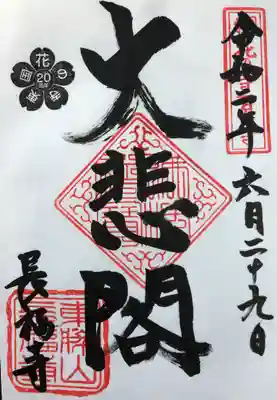 令和二年六月二十九日
大悲閣
長福寺
東国花の寺
20